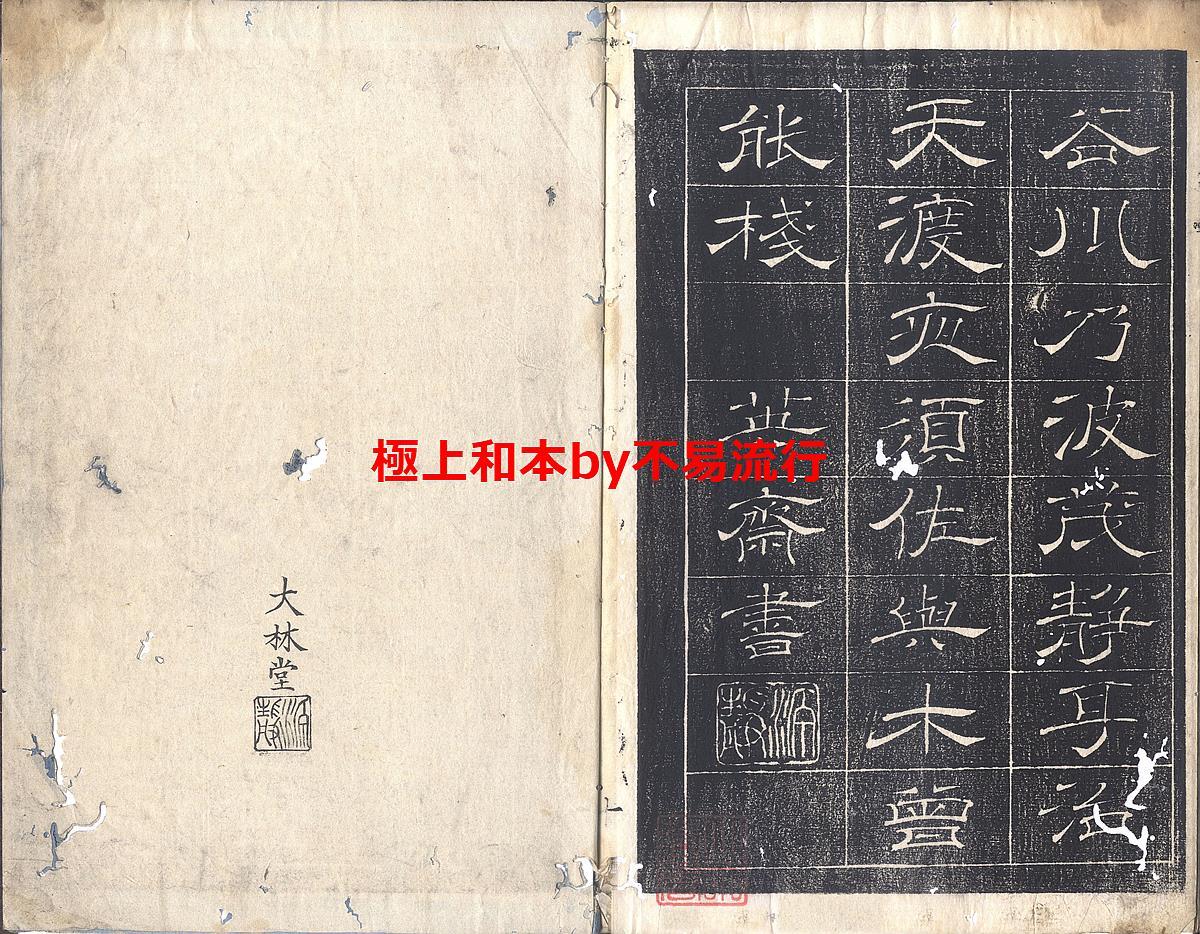 谷川乃波茂静耳
天渡亦須佐與木曾
能棧
齋書
大林堂
極上和本by不易流行